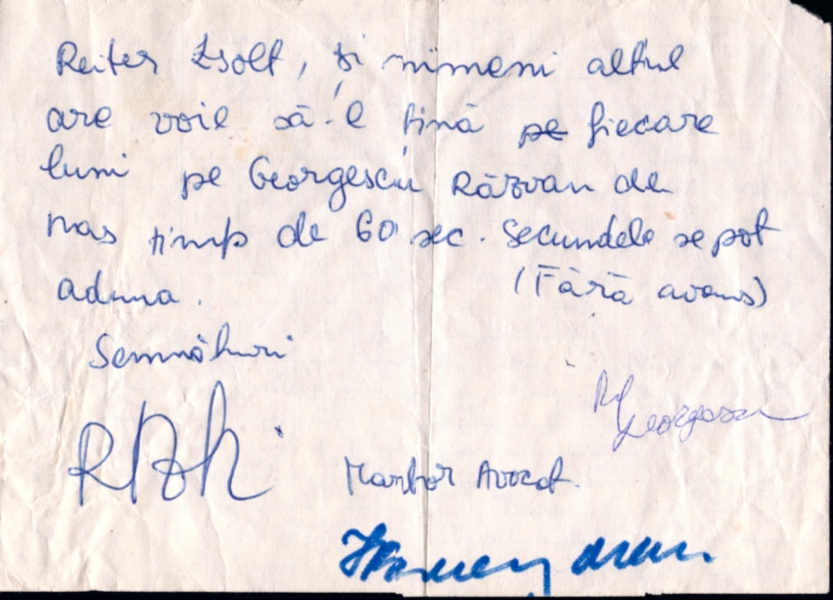 Reiter Zsolt, și nimeni altul
are voie să-l țină pe fiecare
luni pe Georgescu Răzvan de
nas timp de 60 sec. Secundele se pot
aduna. (Fără avans)
Semnături
Georgescu
Martor Avocat